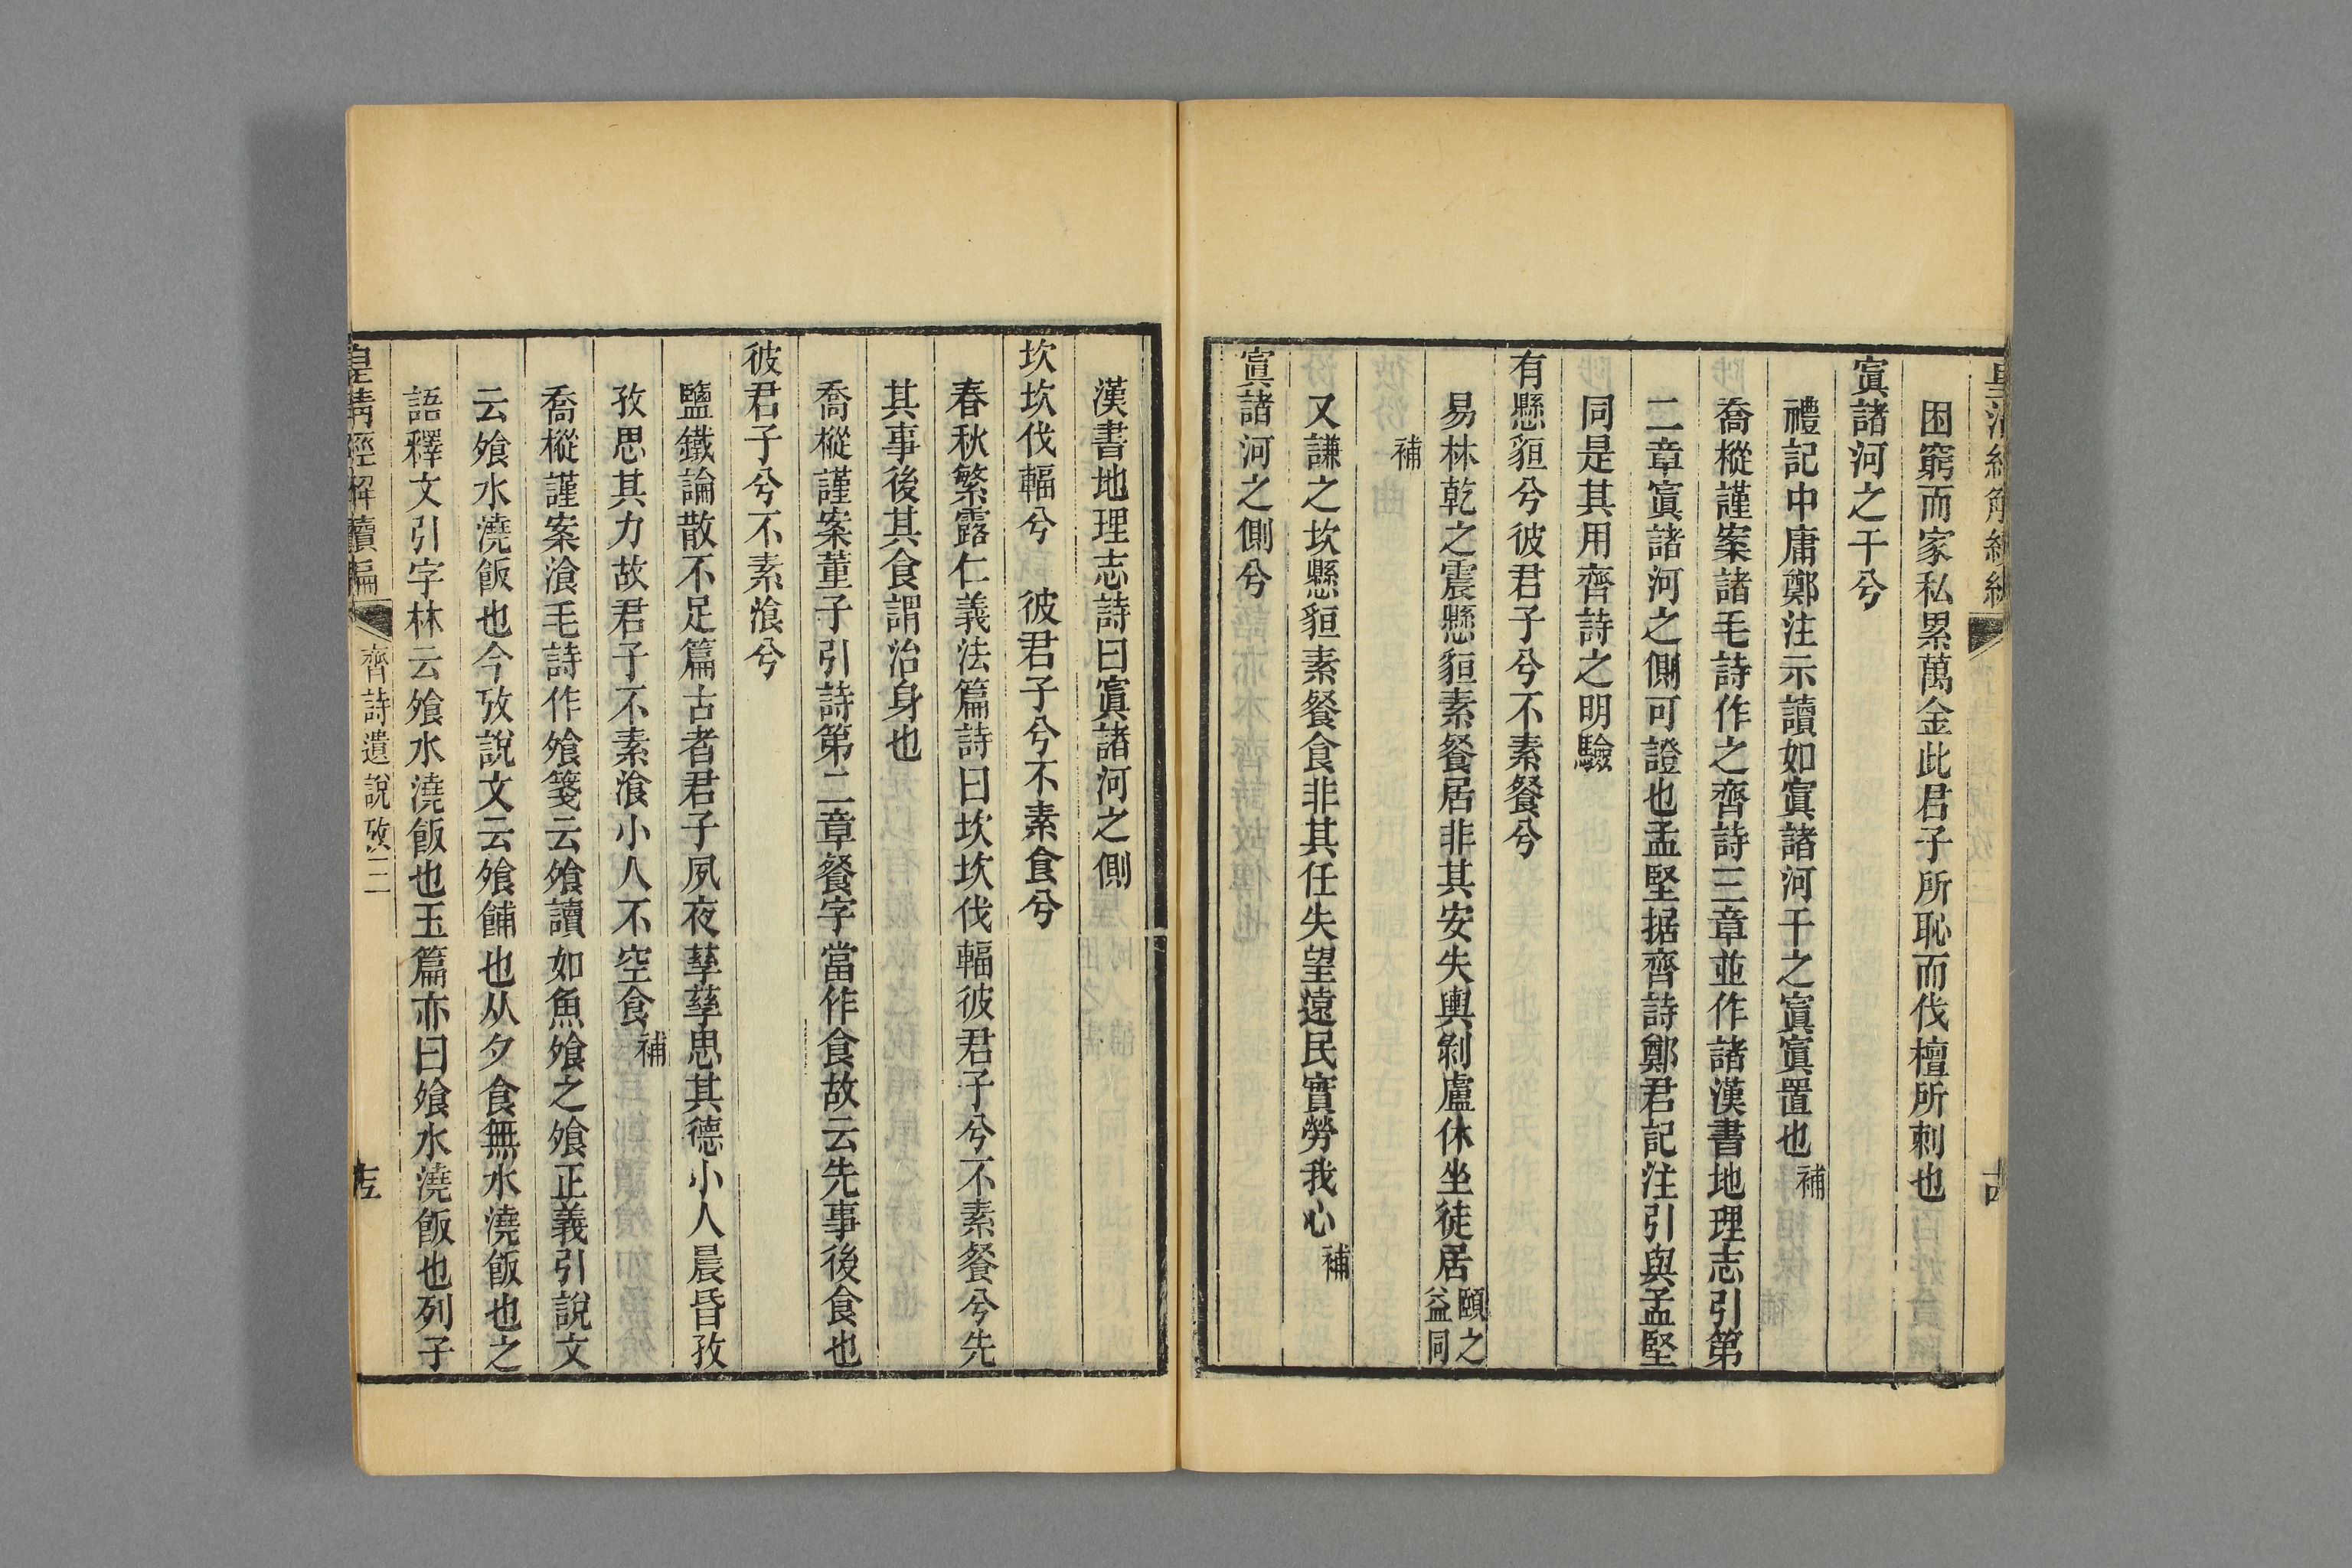 困窮而家私累萬金此君子所恥而伐檀所刺也
寘諸河之干兮
禮記中庸鄭注示讀如寘諸河干之寘寘置也補
喬樅謹案諸毛詩作之齊詩三章並作諸漢書地理志引第
二章寘諸河之側可證也孟堅据齊詩鄭君記注引與孟堅
同是其用齊詩之明驗
有懸貆兮彼君子兮不素餐兮
易林乾之震懸貆素餐居非其安失輿剝廬休坐徒居頤之益同
補
又謙之坎懸貆素餐食非其任失望遠民實勞我心補
寘諸河之側兮
漢書地理志詩曰寘諸河之側
坎坎伐輻兮 彼君子兮不素食兮
春秋繁露仁義法篇詩曰坎坎伐輻彼君子兮不素餐兮先
其事後其食謂治身也
喬樅謹案董子引詩第二章餐字當作食故云先事後食也
彼君子兮不素飡兮
鹽鐵論散不足篇古者君子夙夜孳孳思其德小人晨昏孜
孜思其力故君子不素飡小人不空食補
喬樅謹案飡毛詩作飧箋云飧讀如魚飧之飧正義引說文
云飧水澆飯也今攷說文云飧餔也从夕食無水澆飯也之
語釋文引字林云飧水澆飯也玉篇亦曰飧水澆飯也列子
皇清經解續編
齊詩遺說攷二